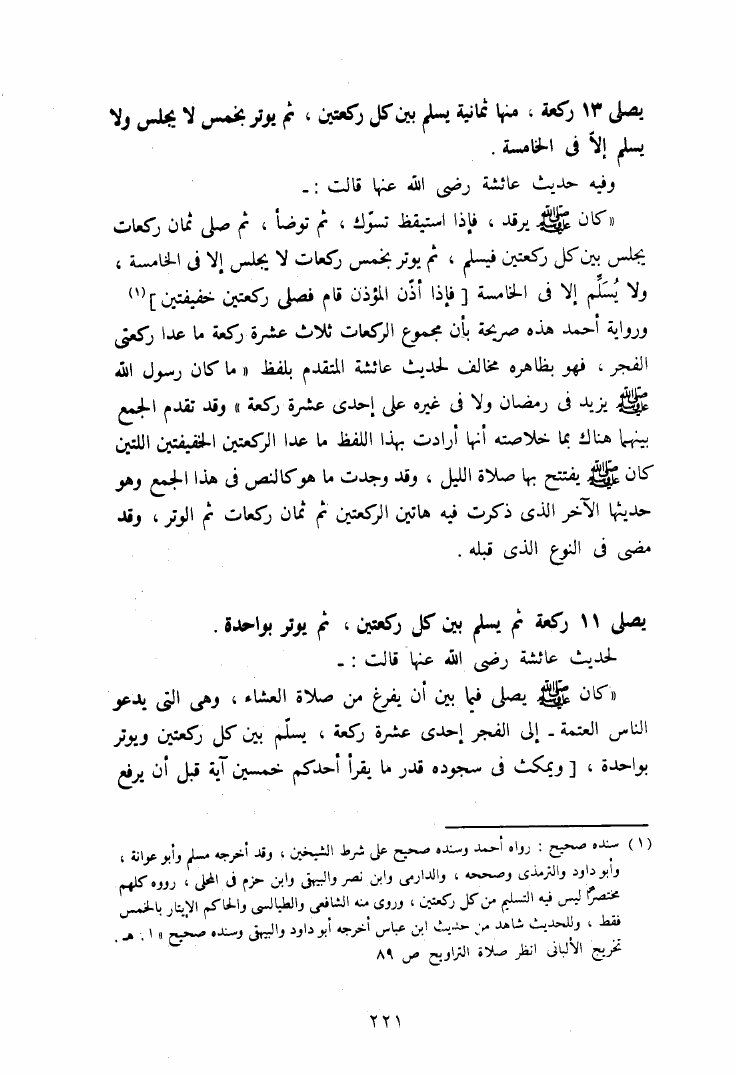 يصلى ١٣ ركعة ، منها ثمانية يسلم بين كل ركعتين ، ثم يوتر بخمس لا يجلس ولا
يسلم إلاّ فى الخامسة .
وفيه حديث عائشة رضى الله عنها قالت : ـ
« كان ﷺ يرقد ، فإذا استيقظ تسوّك ، ثم توضأ ، ثم صلى ثمان ركعات
يجلس بين كل ركعتين فيسلم ، ثم يوتر بخمس ركعات لا يجلس إلا فى الخامسة ،
ولا يُسَلِّم إلا فى الخامسة [ فإذا أذّن المؤذن قام فصلى ركعتين خفيفتين ] (١)
ورواية أحمد هذه صريحة بأن مجموع الركعات ثلاث عشرة ركعة ما عدا ركعتى
الفجر ، فهو بظاهره مخالف لحديث عائشة المتقدم بلفظ « ما كان رسول الله
ﷺ يزيد فى رمضان ولا فى غيره على إحدى عشرة ركعة » وقد تقدم الجمع
بينهما هناك بما خلاصته أنها أرادت بهذا اللفظ ما عدا الركعتين الخفيفتين اللتين
كان ﷺ يفتتح بها صلاة الليل ، وقد وجدت ما هو كالنص فى هذا الجمع وهو
حديثها الآخر الذى ذكرت فيه هاتين الركعتين ثم ثمان ركعات ثم الوتر ، وقد
مضى فى النوع الذى قبله .
يصلى ١١ ركعة ثم يسلم بين كل ركعتين ، ثم يوتر بواحدة .
لحديث عائشة رضى الله عنها قالت : ـ
« كان ﷺ يصلى فيما بين أن يفرغ من صلاة العشاء ، وهى التى يدعو
الناس العتمة ـ إلى الفجر إحدى عشرة ركعة ، يسلّم بين كل ركعتين ويوتر
بواحدة ، [ ويمكث فى سجوده قدر ما يقرأ أحدكم خمسين آية قبل أن يرفع
(١) سنده صحيح : رواه أحمد وسنده صحيح على شرط الشيخين ، وقد أخرجه مسلم وأبو عوانة ،
وأبو داود والترمذى وصححه ، والدارمى وابن نصر والبيهقى وابن حزم فى المحلى ، رووه كلهم
مختصراً ليس فيه التسليم من كل ركعتين ، وروى منه الشافعى والطيالسى والحاكم الإيتار بالخمس
فقط ، وللحديث شاهد من حديث ابن عباس أخرجه أبو داود والبيهقى وسنده صحيح » ا . هـ .
تخريج الألبانى انظر صلاة التراويح ص ٨٩
٢٢١